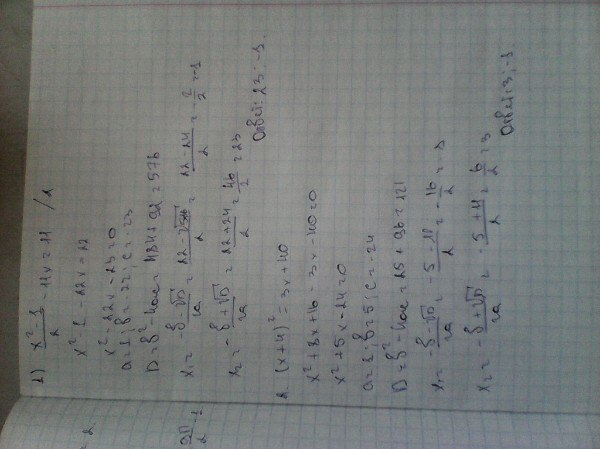 1) (x²-1)/2 - 11x = 11 /2
x² - 1 - 22x = 22
x² - 22x - 23 = 0
a = 1; b = -22; c = -23
D = b² - 4ac = 484 + 92 = 576
x₁ = (-b - √D)/2a = (22 - √576)/2 = (22 - 24)/2 = -2/2 = -1
x₂ = (-b + √D)/2a = (22 + 24)/2 = 46/2 = 23
Ответ: 23; -1.
2. (x+4)² = 3x + 40
x² + 8x + 16 - 3x - 40 = 0
x² + 5x - 24 = 0
a = 1; b = 5; c = -24
D = b² - 4ac = 25 + 96 = 121
x₁ = (-b - √D)/2a = (-5 - 11)/2 = -16/2 = -8
x₂ = (-b + √D)/2a = (-5 + 11)/2 = 6/2 = 3
Ответ: 3; -8